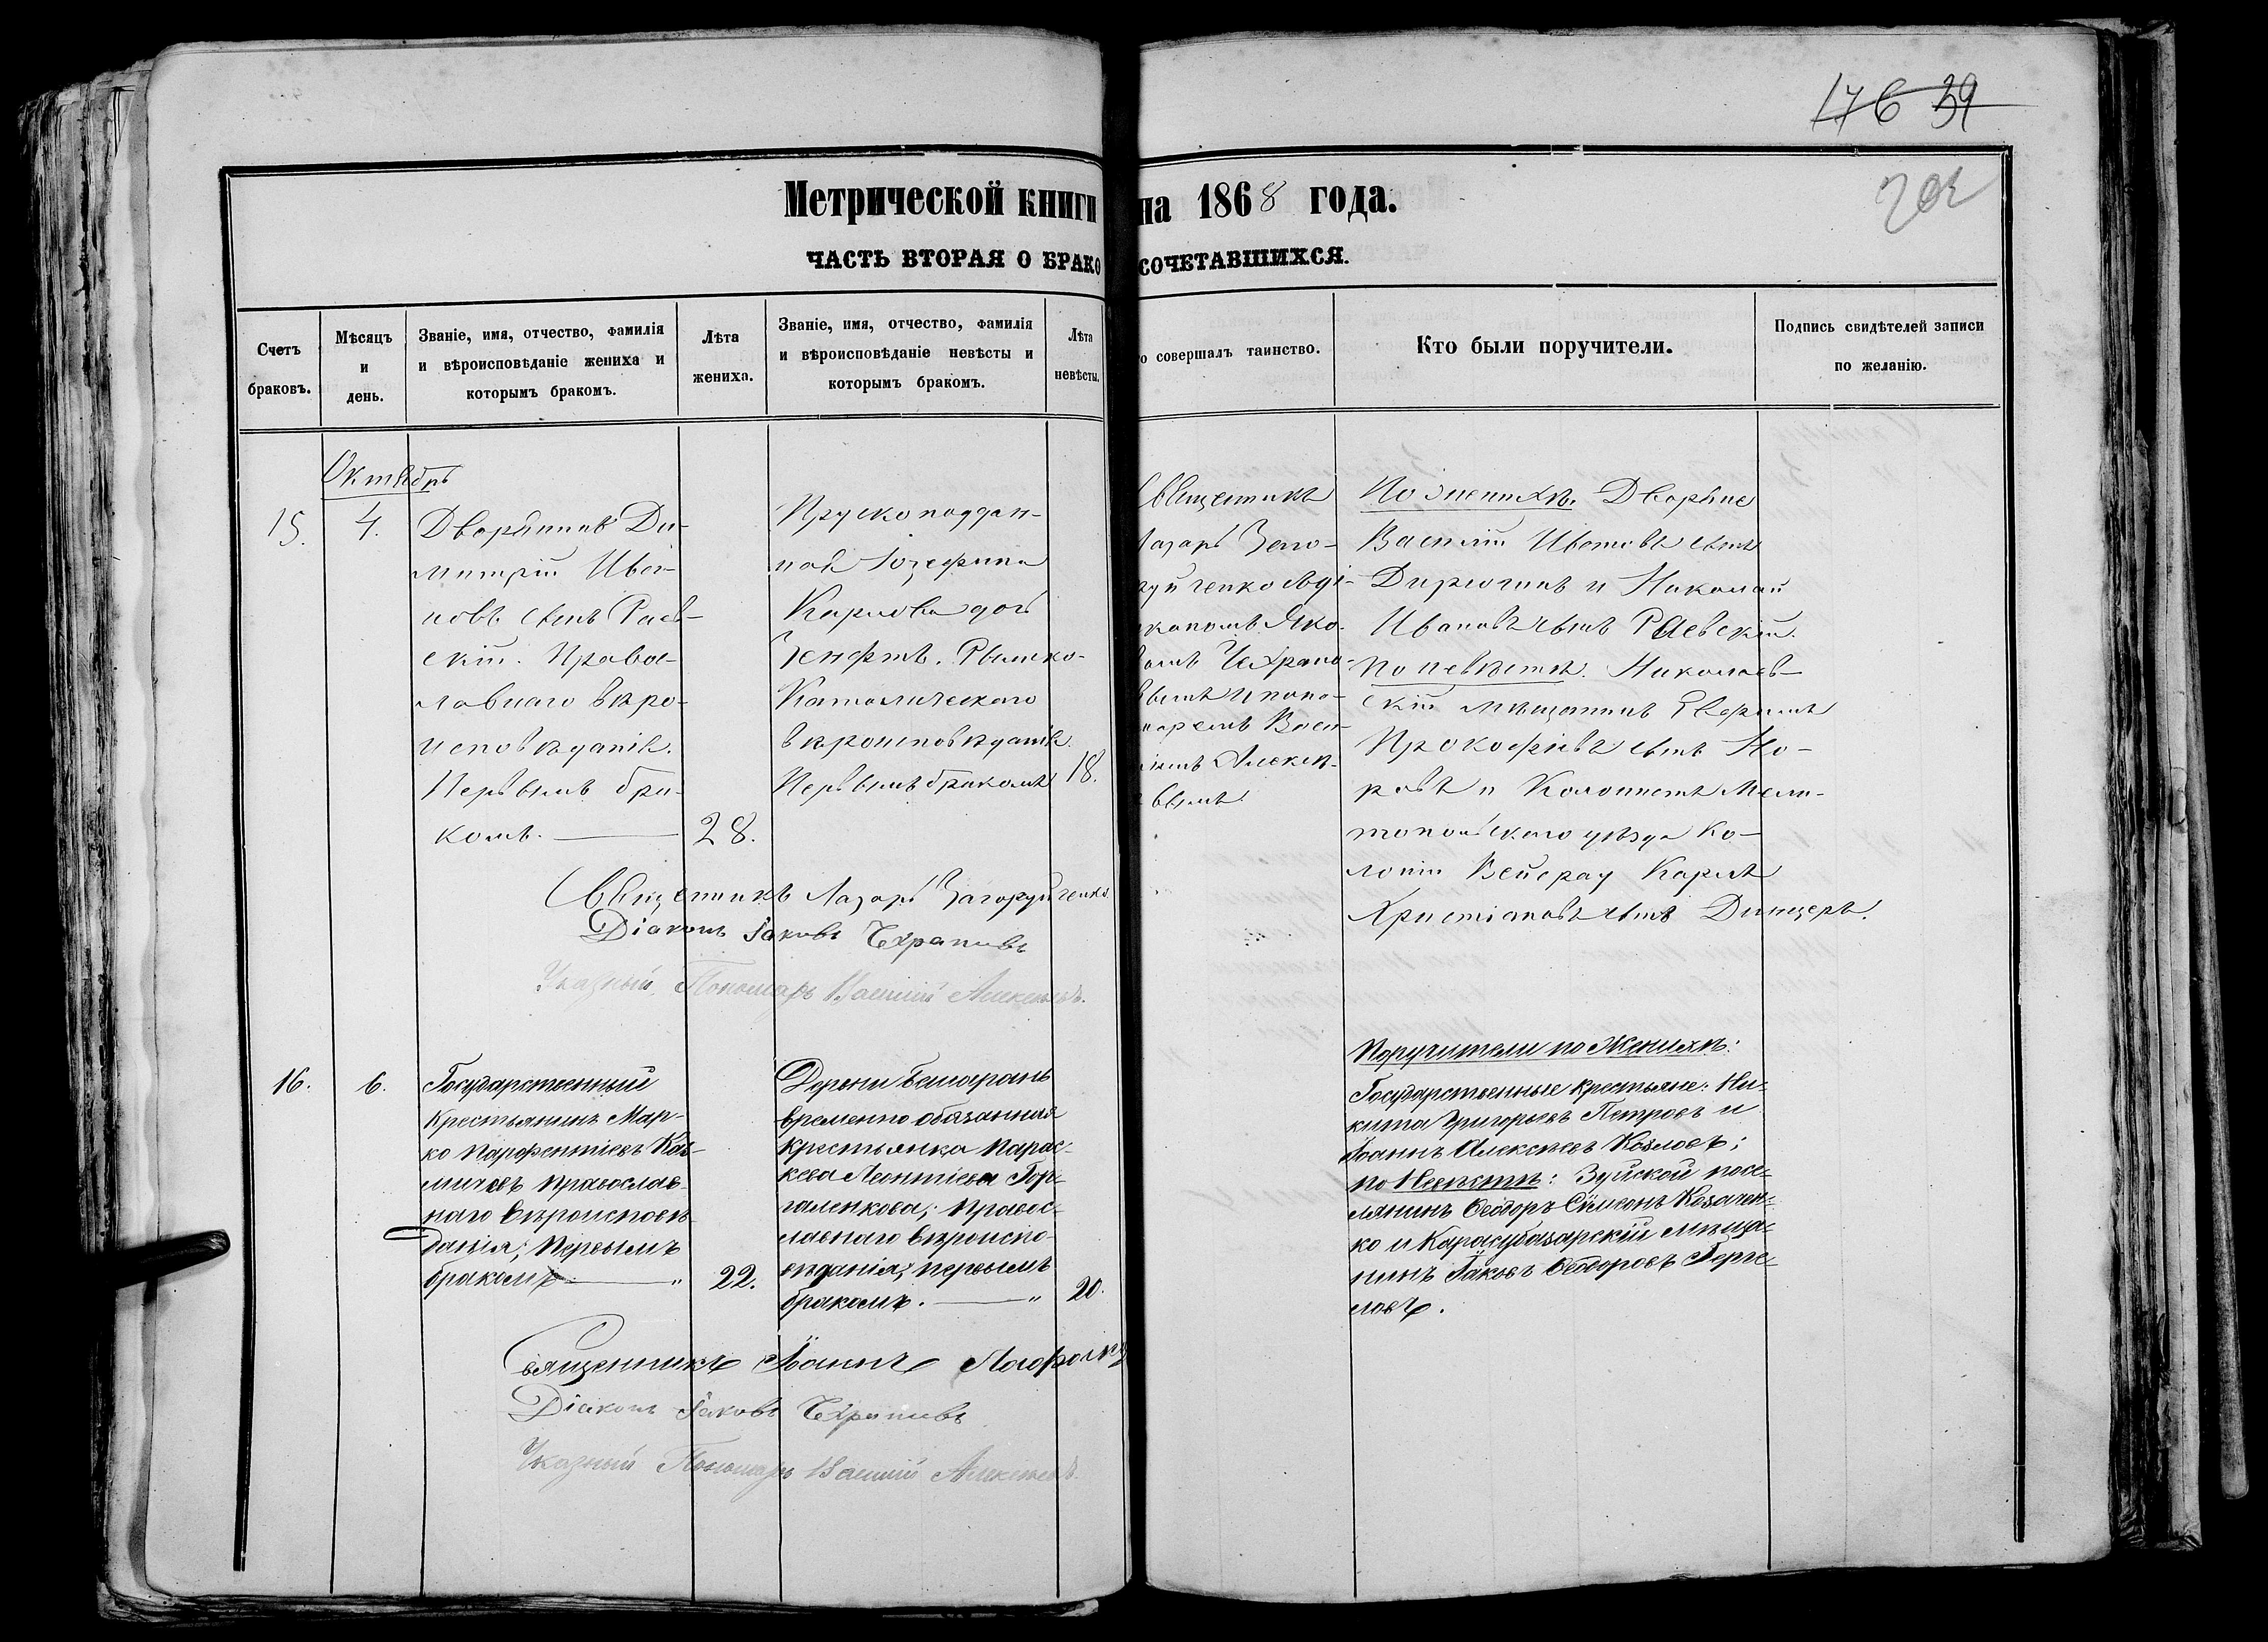 176 39
202
Метрической книги на 1868 года.
ЧАСТЬ ВТОРАЯ О БРАКОСОЧЕТАВШИХСЯ.
Счетъ браковъ.
Мѣсяцъ и день.
Званіе, имя, отчество, фамилія и вѣроисповѣданіе жениха и которымъ бракомъ.
Лѣта жениха.
Званіе, имя, отчество, фамилія и вѣроисповѣданіе невѣсты и которымъ бракомъ.
Лѣта невѣсты.
о совершалъ таинство.
Кто были поручители.
Подпись свидѣтелей записи по желанію.
Октябрь
15.
4.
Дворянинъ Ди-
митрій Ива-
новъ сынъ Раев-
скій. Правос-
лавнаго вѣро-
исповѣданія.
Первымъ бра-
комъ.
28.
Прускоподдан-
ная Іозефина
Карлова дочь
Зенфтъ. Римско-
Католическаго
вѣроисповѣданія.
Первымъ бракомъ
18.
Священникъ
Лазарь Заго-
руйченко съ ді-
кономъ Яко-
вомъ Чехрано-
вымъ и поно-
маремъ Васи-
ліемъ Алексѣ-
вымъ.
По женихѣ. Дворяне
Василій Ивановъ сынъ
и Николай
Ивановъ сынъ Раевскій.
По невѣстѣ. Николаев-
скій мѣщанинъ
Прокофіевъ сынъ
и Колонистъ Мели-
топольскаго уѣзда Ко-
лоніи Вейерау Карлъ
Христіановъ сынъ
Священникъ Лазарь Загоруйченко
Діаконъ Іаковъ Чехрановъ
Указный Пономарь Василій Алексѣевъ.
16.
6.
Государственный
Крестьянинъ Мар-
ко Парфентіевъ
Православ-
наго вѣроисповѣ-
данія; первымъ
бракомъ — "
22.
Деревни Бешаранъ
временно обязанная
крестьянка Парас-
кева Леонтіева Гор-
галенкова; правос-
лавнаго вѣроиспо-
вѣданія; первымъ
бракомъ. — "
20.
Поручители по Женихѣ:
Государственные крестьяне: Ни-
кита Григорьевъ Петровъ и
Іоаннъ Алексѣевъ Козловъ;
по Невѣстѣ: Зуйской посе-
лянинъ Ѳеодоръ Сѵмеонъ Козачен-
ко и Карасубазарскій мѣща-
нинъ Іаковъ Ѳеодоровъ
ловъ.
Священникъ Іоаннъ
Діаконъ Іаковъ Чехрановъ
Указный Пономарь Василій Алексѣевъ.